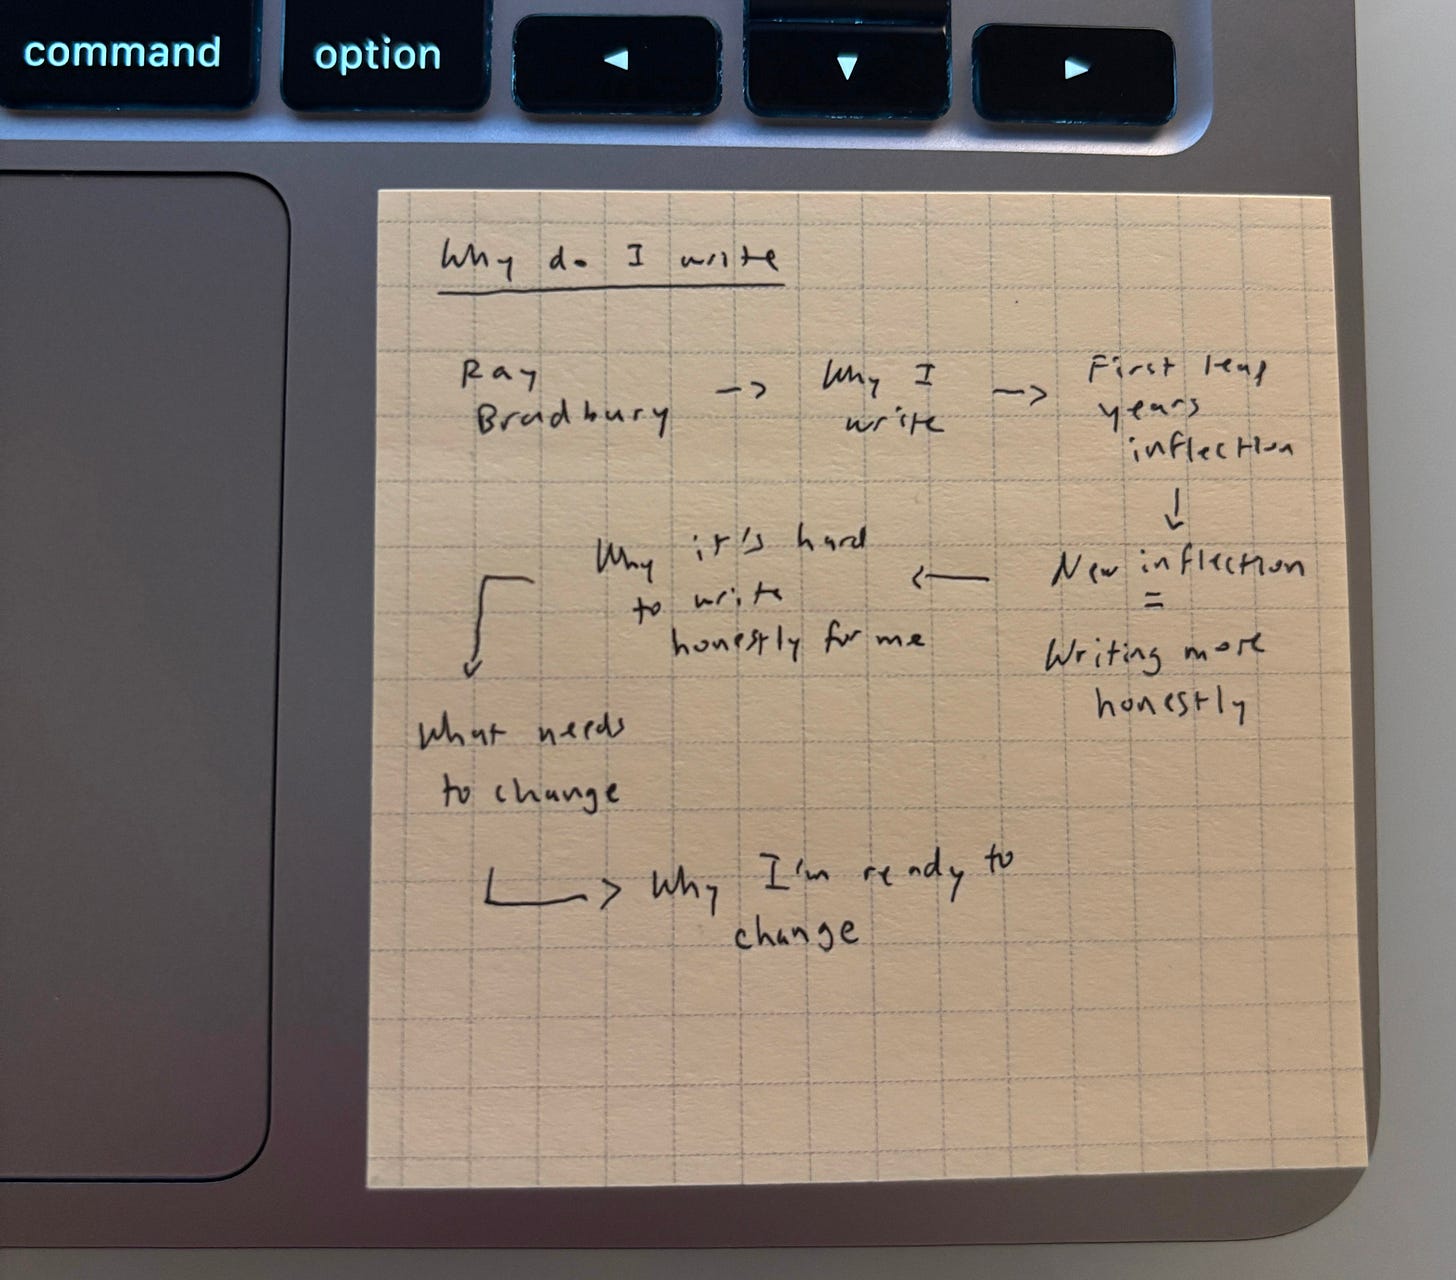 command option ◄ ▼ ►
Why do I write
Ray
Bradbury
->
Why I
write
->
First leap
years
inflection
↓
New inflection
=
Writing more
honestly
<-
Why it's hard
to write
honestly for me
What needs
to change
Why I'm ready to
change